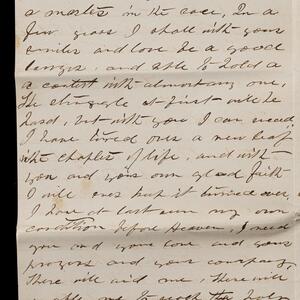 a master in the race, In a
few years I shall with your
smiles and love be a good
lawyer, and able to hold a
a contest with almost any one,
The struggle at first will be
hard, but with you I can succeed
I have turned over a new leaf
the chapter of life, and with
you and your own good faith
I will ever keep it turned over.
I have at last seen my own
condition before Heaven, I need
you and your love and your
prayers and your company,
There will aid me, There will
able me to reach the